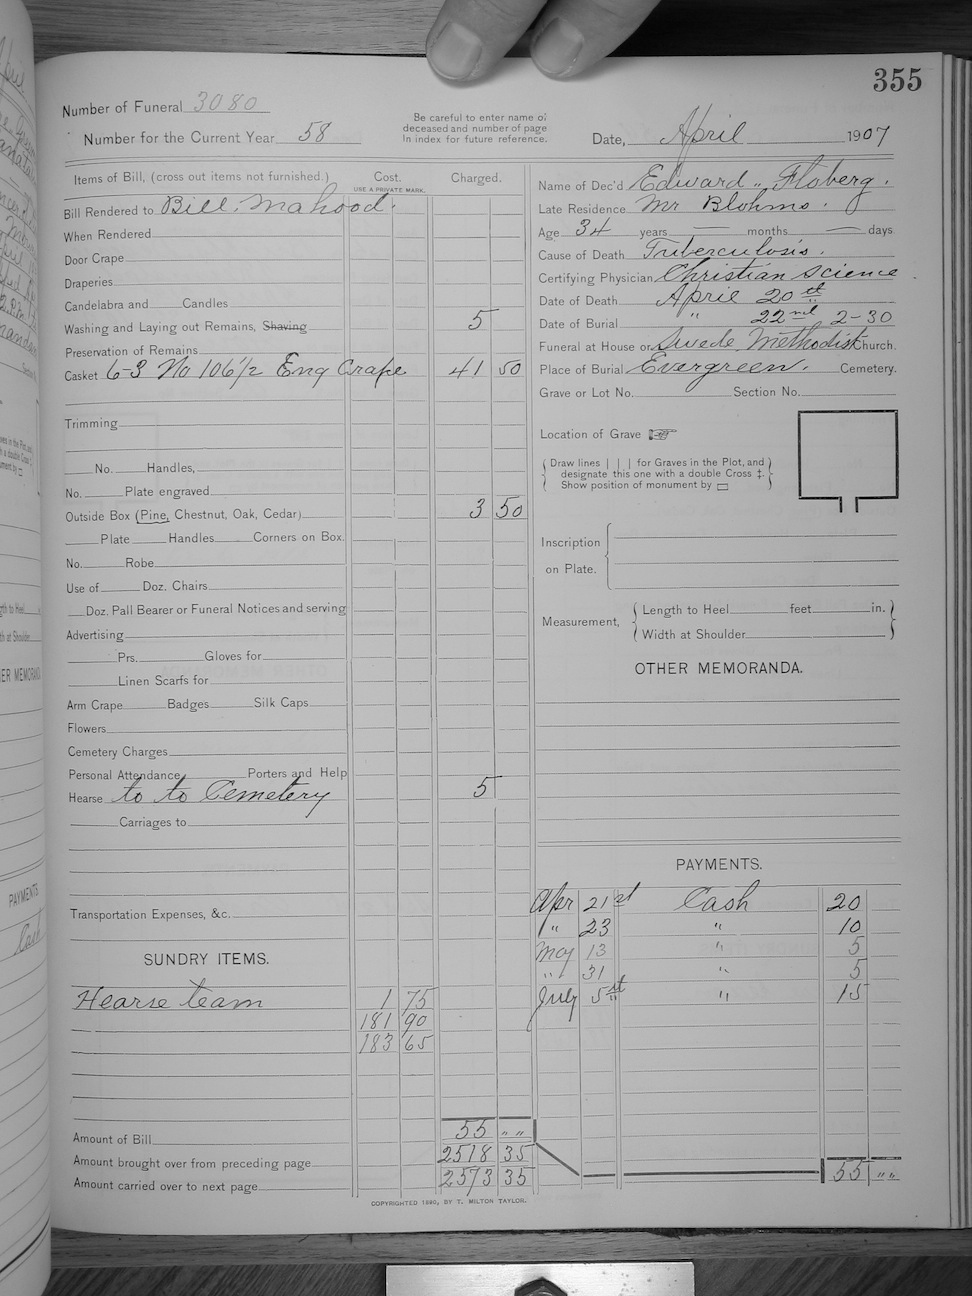 355
Number of Funeral 3080
Number for the Current Year 58
Be careful to enter name of
deceased and number of page
in index for future reference.
Date, April 1907
Items of Bill, (cross out items not furnished.) Cost. Charged.
USE A PRIVATE MARK.
Bill Rendered to Bill. Mahood.
When Rendered
Door Crape
Draperies
Candelabra and Candles
Washing and Laying out Remains, Shaving 5
Preservation of Remains
Casket 6-3 No 106½ Eng Crape 41 50
Trimming
No. Handles,
No. Plate engraved
Outside Box (Pine, Chestnut, Oak, Cedar) 3 50
Plate Handles Corners on Box.
No. Robe
Use of Doz. Chairs
Doz. Pall Bearer or Funeral Notices and serving
Advertising
Prs. Gloves for
Linen Scarfs for
Arm Crape Badges Silk Caps
Flowers
Cemetery Charges
Personal Attendance Porters and Help
Hearse to to Cemetery 5
Carriages to
Transportation Expenses, &c.
SUNDRY ITEMS.
Hearse team 1 75
181 90
183 65
Amount of Bill 55 " "
Amount brought over from preceding page 2518 35
Amount carried over to next page 2573 35
Name of Dec'd Edward " Floberg.
Late Residence Mr Blohms.
Age 34 years — months — days
Cause of Death Tuberculosis.
Certifying Physician Christian science
Date of Death April 20th
Date of Burial " 22nd 2-30
Funeral at House or Swede Methodist Church.
Place of Burial Evergreen. Cemetery.
Grave or Lot No. Section No.
Location of Grave ☞
Draw lines | | | for Graves in the Plot, and
designate this one with a double Cross ‡.
Show position of monument by ▭
Inscription
on Plate.
Measurement, Length to Heel feet in.
Width at Shoulder
OTHER MEMORANDA.
PAYMENTS.
Apr 21st Cash 20
" 23 " 10
May 13 " 5
" 31 " 5
July 5st " 15
55 " "
COPYRIGHTED 1890, BY T. MILTON TAYLOR.